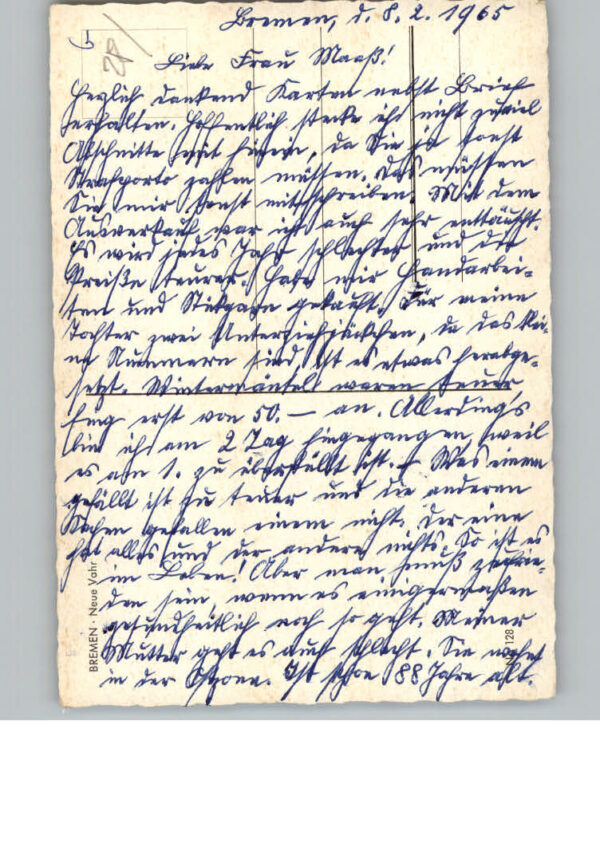 Bremen, d. 8. 2. 1965
Liebe Frau Maaß!
Herzlich dankend Karten nebst Brief
erhalten. Hoffentlich stecke ich nicht zuviel
Abschnitte mit hinein, da Sie ja sonst
Strafporto zahlen müssen. Das müssen
Sie mir sonst mitschreiben. Mit dem
Ausverkauf war ich auch sehr enttäuscht.
Es wird jedes Jahr schlechter und die
Preiße teurer. Habe mir Handarbei-
ten und Stickgarn gekauft. Für meine
Tochter zwei Unterziehjäckchen, da das klei-
ne Nummern sind, ist es etwas herabge-
setzt. Wintermäntel waren teuer
fing erst von 50.– an. Allerdings
bin ich am 2 Tag hingegangen, weil
es am 1. zu überfüllt ist. – Was einem
gefällt ist zu teuer und die anderen
Sachen gefallen einem nicht. Der eine
hat alles und der andere nichts. So ist es
im Leben! Aber man muß zufrie-
den sein, wenn es einigermaßen
gesundheitlich noch so geht. Meiner
Mutter geht es auch schlecht. Sie wohnt
in der Ist schon 88 Jahre alt.
BREMEN · Neue Vahr
128